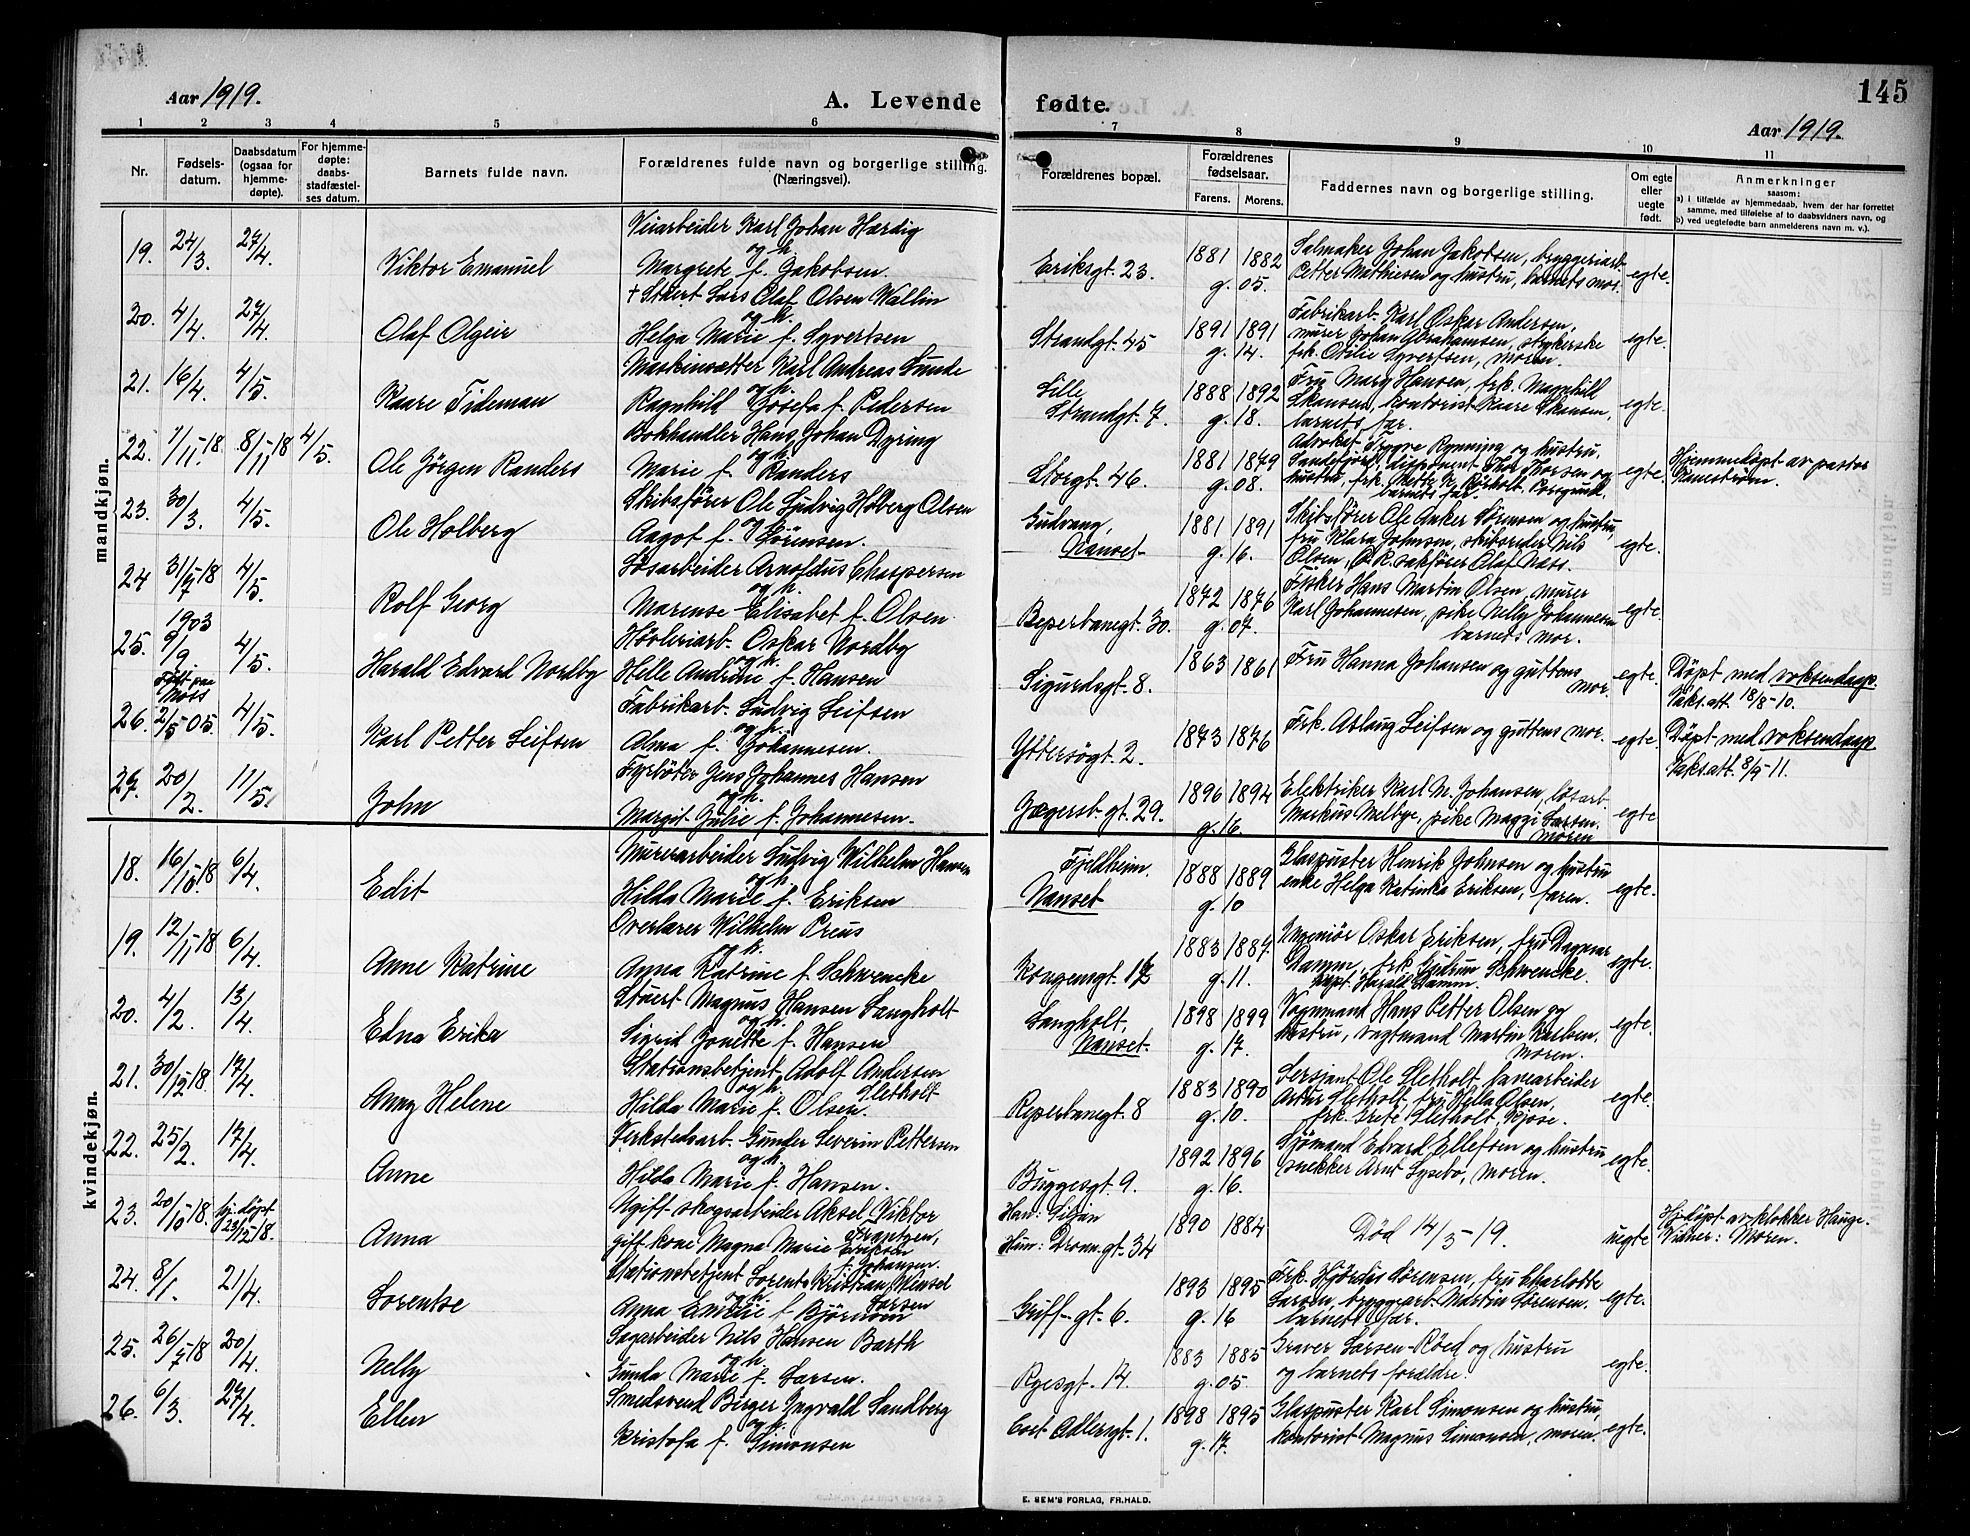 145
Aar 1919.
A. Levende fødte.
Aar 1919.
1 2 3 4 5 6 7 8 9 10 11
Nr.
Fødsels-
datum.
Daabsdatum
(ogsaa for
hjemme-
døpte).
For hjemme-
døpte:
daabs-
stadfæstel-
ses datum.
Barnets fulde navn.
Forældrenes fulde navn og borgerlige stilling.
(Næringsvei).
Forældrenes bopæl.
Forældrenes
fødselsaar.
Farens. Morens.
Faddernes navn og borgerlige stilling.
Om egte
eller
uegte
født.
Anmerkninger
saasom:
a) i tilfælde av hjemmedaab, hvem der har forrettet
samme, med tilføielse af to daabsvidners navn, og
b) ved uegtefødte barn anmelderens navn m. v.).
mandkjøn.
19. 24/3. 27/4. Viktor Emanuel
Veiarbeider Karl Johan Hardig
og h.
Margrete f. Jakobsen.
Eriksgt. 23. 1881 1882 g. 05.
Salmaker Johan Jakobsen, bryggeriarb.
Petter Mathiesen og hustru, barnets mor. egte.
20. 4/4. 27/4. Olaf Olgeir
+ Stuert Lars Olaf Olsen Wallin
og h.
Helga Marie f. Syvertsen
Strandgt. 45 1891 1891 g. 14.
Fabrikarb. Karl Oskar Andersen,
murer Johan Abrahamsen, strykerske
frk. Otilie Syvertsen, moren. egte.
21. 16/4. 4/5. Kaare Fideman
Maskinsætter Karl Andreas Lunde
og h.
Ragnhild Josefa f. Pedersen
Lille
Strandgt. 7. 1888 1892 g. 18.
Fru Marg Hansen, frk. Magnhild
Skansen, kontorist Kaare Skansen,
barnets far. egte.
22. 7/11.-18 8/11-18 4/5. Ole Jörgen Randers
Bokhandler Hans Johan Dyring
og h.
Marie f. Randers
Storgt. 46. 1881 1879 g. 08.
Advokat Trygve Rynning og hustru,
Sandefjord, disponent Thor Thorsen og
hustru, frk. Mette K. Bjørholt, Porsgrund,
barnets far. egte.
Hjemmedöpt av pastor
Ramström.
23. 30/3. 4/5. Ole Holberg
Skibsförer Ole Ludvig Holberg Olsen
og h.
Aagot f. Sörensen.
Gudvang,
Nanset 1881 1891 g. 16.
Skibsförer Ole Anker Sörensen og hustru,
fru Klara Johnsen, skibsreder Nils
Olsen, O.r. sakförer Olaf Næss. egte.
24 31/7-18 4/5. Rolf Georg
Løsarbeider Arnoldus Chaspersen
og h.
Marense Elisabet f. Olsen
Reperbanegt. 30. 1872 1876 g. 07.
Fisker Hans Martin Olsen, murer
Karl Johannesen, pike Nelly Johannesen
barnets mor. egte
25. 1903 9/9. 4/5. Harald Edvard Nordby
Født paa
Moss
Høvleriarb. Oskar Nordby
og h.
Helle Andrine f. Hansen
Sigurdsgt. 8. 1863 1861
Fru Hanna Johansen og guttens
mor. egte.
Döpt med voksendaap.
Vaks.att. 18/8-10.
26. 2/5-05. 4/5. Karl Petter Leifsen
Fabrikarb. Ludvig Leifsen
og h.
Alma f. Johannesen.
Yttersögt 2. 1873 1876
Frk. Aslaug Leifsen og guttens mor. egte.
Döpt med voksendaap
Vaks.att. 8/9-11.
27. 20/2. 11/5. John
Fyrböter Jens Johannes Hansen
og h.
Margit Julie f. Johannesen.
Jægersb.gt. 29. 1896 1894 g. 16
Elektriker Karl M. Johansen, løsarb.
Markus Melbye, pike Maggi Larsen.
moren egte
kvindekjøn.
18. 16/10-18 6/4. Edit
Murerarbeider Ludvig Wilhelm Hansen
og h.
Hilda Marie f. Eriksen
Fjeldheim.
Nanset 1888 1889 g. 10
Glaspuster Henrik Johnsen og hustru
enke Helga Katinka Eriksen, faren. egte.
19. 12/11-18 6/4. Anne Katrine
Overlærer Wilhelm Preus
og h.
Anna Katrine f. Schwencke
Kongensgt. 12 1883 1887. g. 11.
Ingeniör Oskar Eriksen, fru Dagmar
Damm, frk. Gudrun Schwencke.
kapt. Harald Damm. egte.
20. 4/2. 13/4. Edna Erika
Stuert Magnus Hansen Langholt
og h.
Sigrid Jonette f. Hansen
Langholt,
Nanset. 1898 1899 g. 17.
Vognmand Hans Petter Olsen og
hustru, vagtmand Martin Karlsen.
moren. egte.
21. 30/12-18. 17/4. Anny Helene
Stationsbetjent Adolf Andersen
Sletholt
og h.
Hilda Marie f. Olsen.
Reperbanegt. 8 1883 1890 g. 10.
Sersjant Ole Sletholt, banearbeider
Artur Sletholt, fru Hella Olsen,
frk. Grete Sletholt, Kjose. egte.
22. 25/2. 17/4. Anne
Verkstedsarb. Gunder Severin Pettersen
og h.
Hilda Marie f. Hansen.
Buggesgt. 9. 1892 1896 g. 16.
Sjömand Edvard Ellefsen og hustru
snekker Arnt Lysebo, moren. egte.
23. 20/10-18. hj. döpt
23/12-18. Anna
Ugift skogsarbeider Aksel Viktor
Frantzen,
gift kone Magna Marie Eriksen
f. Johansen.
Han: Siljan
Hun: Dronn.gt. 34 1890 1884
Död 14/3-19. uegte
Hj.döpt av klokker Hauge.
Vidner: Moren.
24. 8/1. 21/4. Lorentse
Stationsbetjent Lorents Kristian Wensel
Larsen
og h.
Anna Emelie f. Björnsen
Griff.gt. 6. 1893 1895 g. 16
Frk. Hjördis Sörensen, fru Charlotte
Larsen, bryggearb. Martin Sörensen.
barnets far. egte.
25. 26/7-18 20/4. Nelly
Sagarbeider Nils Hansen Barth
og h.
Gunda Marie f. Larsen.
Ryesgt. 14. 1883 1885 g. 05.
Graver Larsen-Röed og hustru
og barnets foræIdre. egte.
26. 6/3. 27/4. Ellen
Smedsvend Birger Ingvald Sandberg
og h.
Kristofa f. Simonsen
Cort Adlersgt. 1. 1898 1895 g. 17.
Glaspuster Karl Simonsen og hustru,
kontorist Magnus Simonsen, moren. egte.
E. SEM'S FORLAG, FR.HALD.